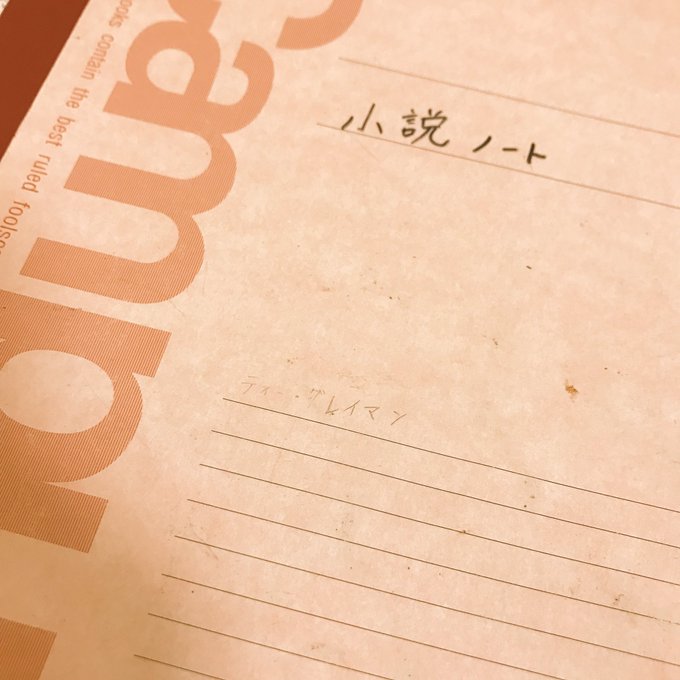 Camp
ooks contain the best ruled foolsc
小説ノート
ディー・グレイマン